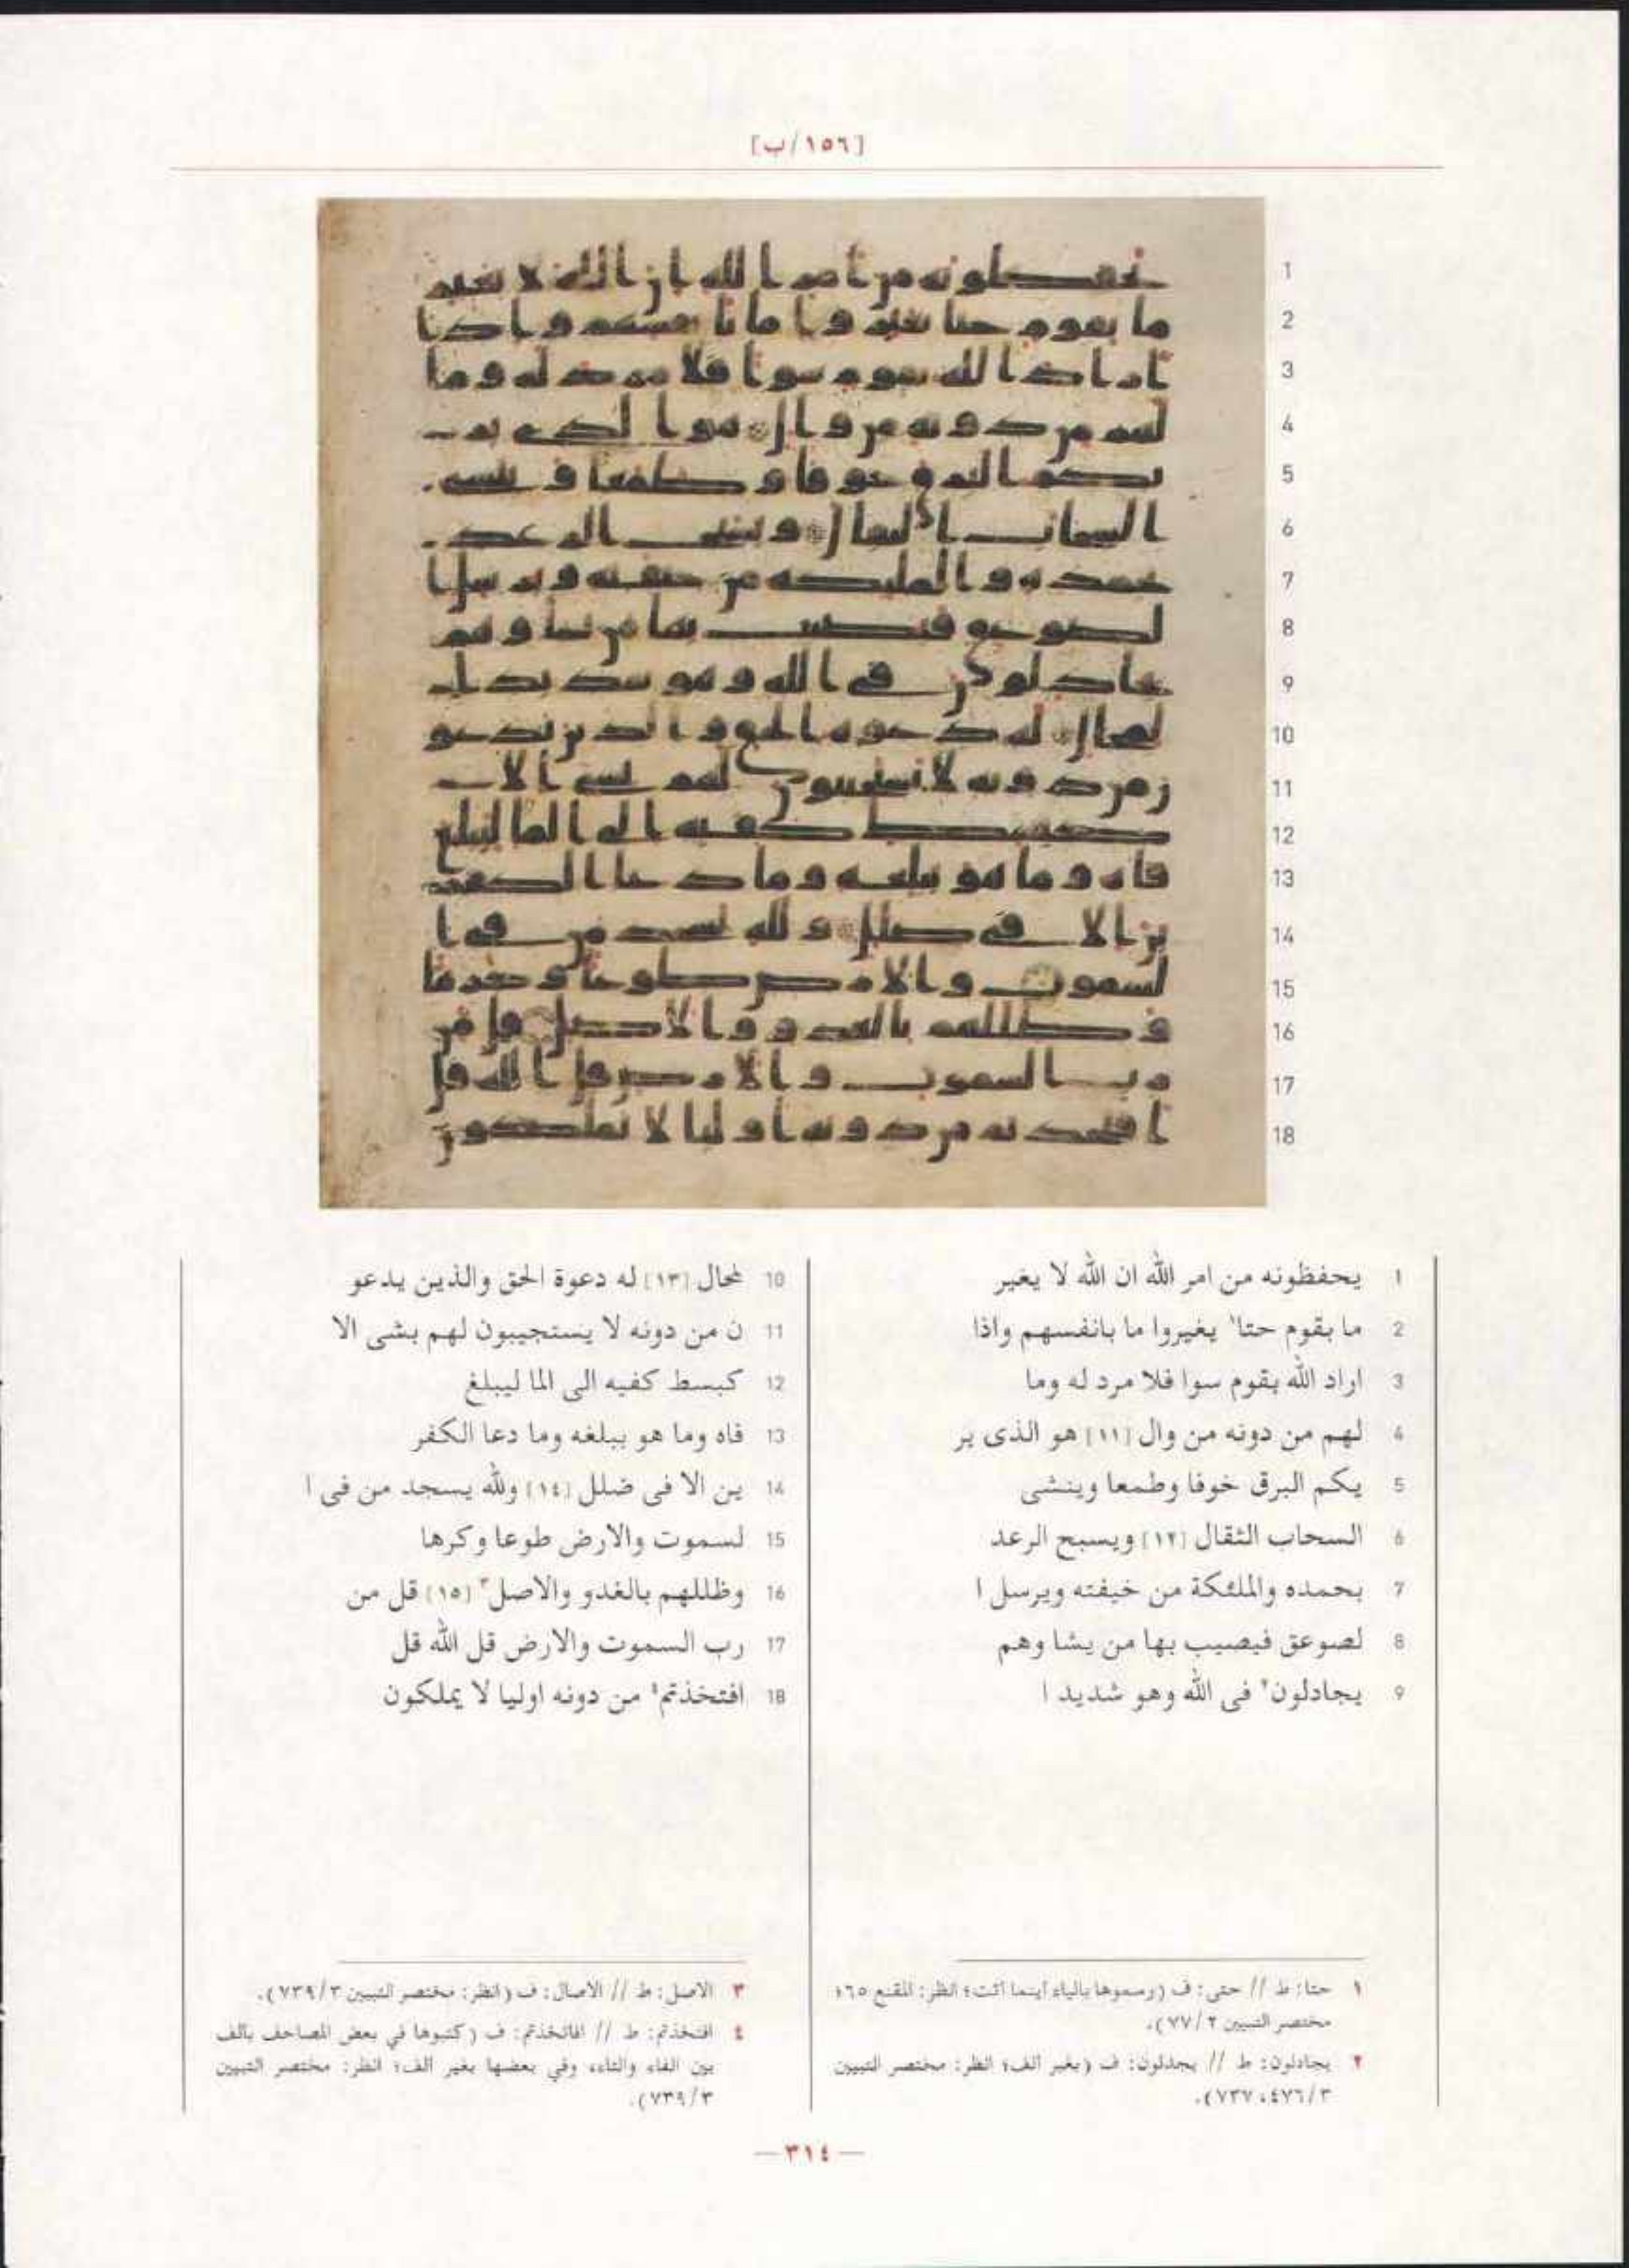 [١٥٦/ب]
1 يحفظونه من امر الله ان الله لا يغير
2 ما بقوم حتا١ يغيروا ما بانفسهم واذا
3 اراد الله بقوم سوا فلا مرد له وما
4 لهم من دونه من وال [١١] هو الذى ير
5 يكم البرق خوفا وطمعا وينشى
6 السحاب الثقال [١٢] ويسبح الرعد
7 بحمده والملئكة من خيفته ويرسل ا
8 لصوعق فيصيب بها من يشا وهم
9 يجادلون٢ فى الله وهو شديد ا
10 لمحال [١٣] له دعوة الحق والذين يدعو
11 ن من دونه لا يستجيبون لهم بشى الا
12 كبسط كفيه الى الما ليبلغ
13 فاه وما هو ببلغه وما دعا الكفر
14 ين الا فى ضلل [١٤] ولله يسجد من فى ا
15 لسموت والارض طوعا وكرها
16 وظللهم بالغدو والاصل٣ [١٥] قل من
17 رب السموت والارض قل الله قل
18 افتخذتم٤ من دونه اوليا لا يملكون
١ حتا: ط // حتى: ف (رسموها بالياء أينما أتت؛ انظر: المقنع ٦٥؛
مختصر التبيين ٧٧/٢).
٢ يجادلون: ط // يجدلون: ف (بغير ألف؛ انظر: مختصر التبيين
٤٧٦/٣، ٧٣٧).
٣ الاصل: ط // الاصال: ف (انظر: مختصر التبيين ٧٣٩/٣).
٤ افتخذتم: ط // افاتخذتم: ف (كتبوها في بعض المصاحف بألف
بين الفاء والتاء، وفي بعضها بغير ألف؛ انظر: مختصر التبيين
٧٣٩/٣).
— ٣١٤ —